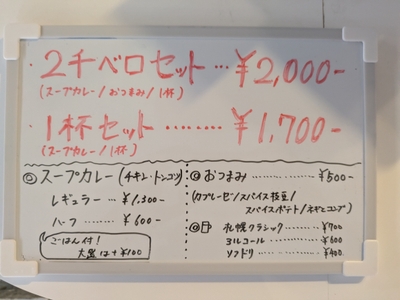 ・2千ベロセット…¥2,000-
(スープカレー/おつまみ/1杯)
・1杯セット………¥1,700-
(スープカレー/1杯)
◎スープカレー(チキン・トンコツ)
レギュラー…¥1,300-
ハーフ…¥600-
ごはん付!
大盛は+¥100
◎おつまみ………¥500-
(カプレーゼ/スパイス枝豆/
スパイスポテト/ネギとコンブ)
◎
札幌クラシック……¥700
ヨルコール……¥600
ソフドリ……¥400